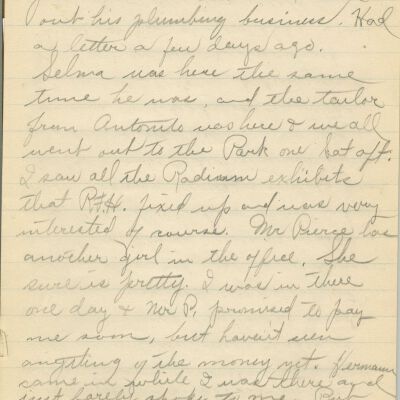 out his plumbing business. Had
a letter a few days ago.
Selma was here the same
time he was, and the tailor
from Antonito was here & we all
went out to the Park one Sat aft.
I saw all the Radium exhibits
that R.F.H. fixed up and was very
interested of course. Mr Pierce has
another girl in the office. She
sure is pretty. I was in there
one day & Mr P. promised to pay
me soon, but havent seen
anything of the money yet. Hermann
came in while I was there and
just barely spoke to me. But